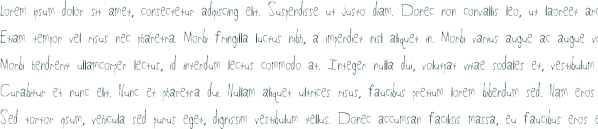 Lorem ipsum dolor sit amet, consectetur adipiscing elit. Suspendisse ut justo diam. Donec non convallis leo, ut laoreet arc
Etiam tempor vel risus nec pharetra. Morbi fringilla luctus nibh, a imperdiet nisl aliquet in. Morbi varius augue ac augue v
Morbi hendrerit ullamcorper lectus, id interdum lectus commodo at. Integer nulla dui, volutpat vitae sodales et, vestibulum
Curabitur et nunc elit. Nunc et pharetra dui. Nullam aliquet ultrices risus, faucibus pretium lorem bibendum sed. Nam eros
Sed tortor ipsum, vehicula sed purus eget, dignissim vestibulum tellus. Donec accumsan facilisis massa, eu faucibus eros